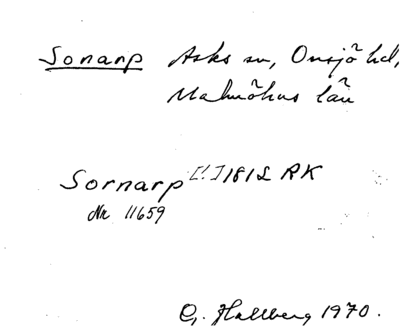 Sonarp Asks sn, Onsjö hd,
Malmöhus län
Sornarp [!] 1812 RK
Nr 11659
G. Hallberg 1970.